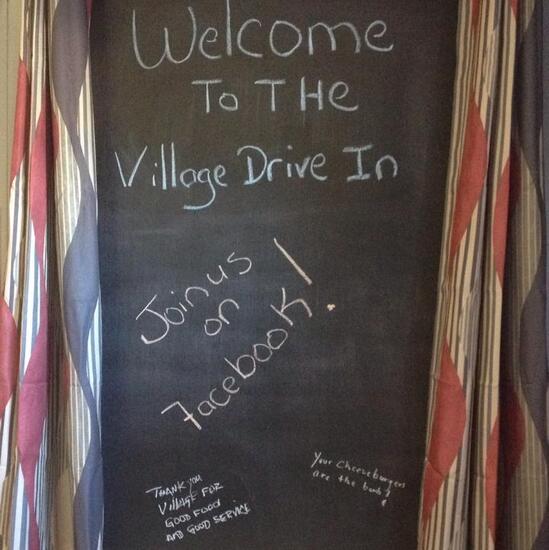 Welcome
To THe
Village Drive In
Join us
on
Facebook!
THANK YOU
VILLAGE FOR
GOOD FOOD
AND GOOD SERVICE
Your Cheeseburgers
are the bomb!